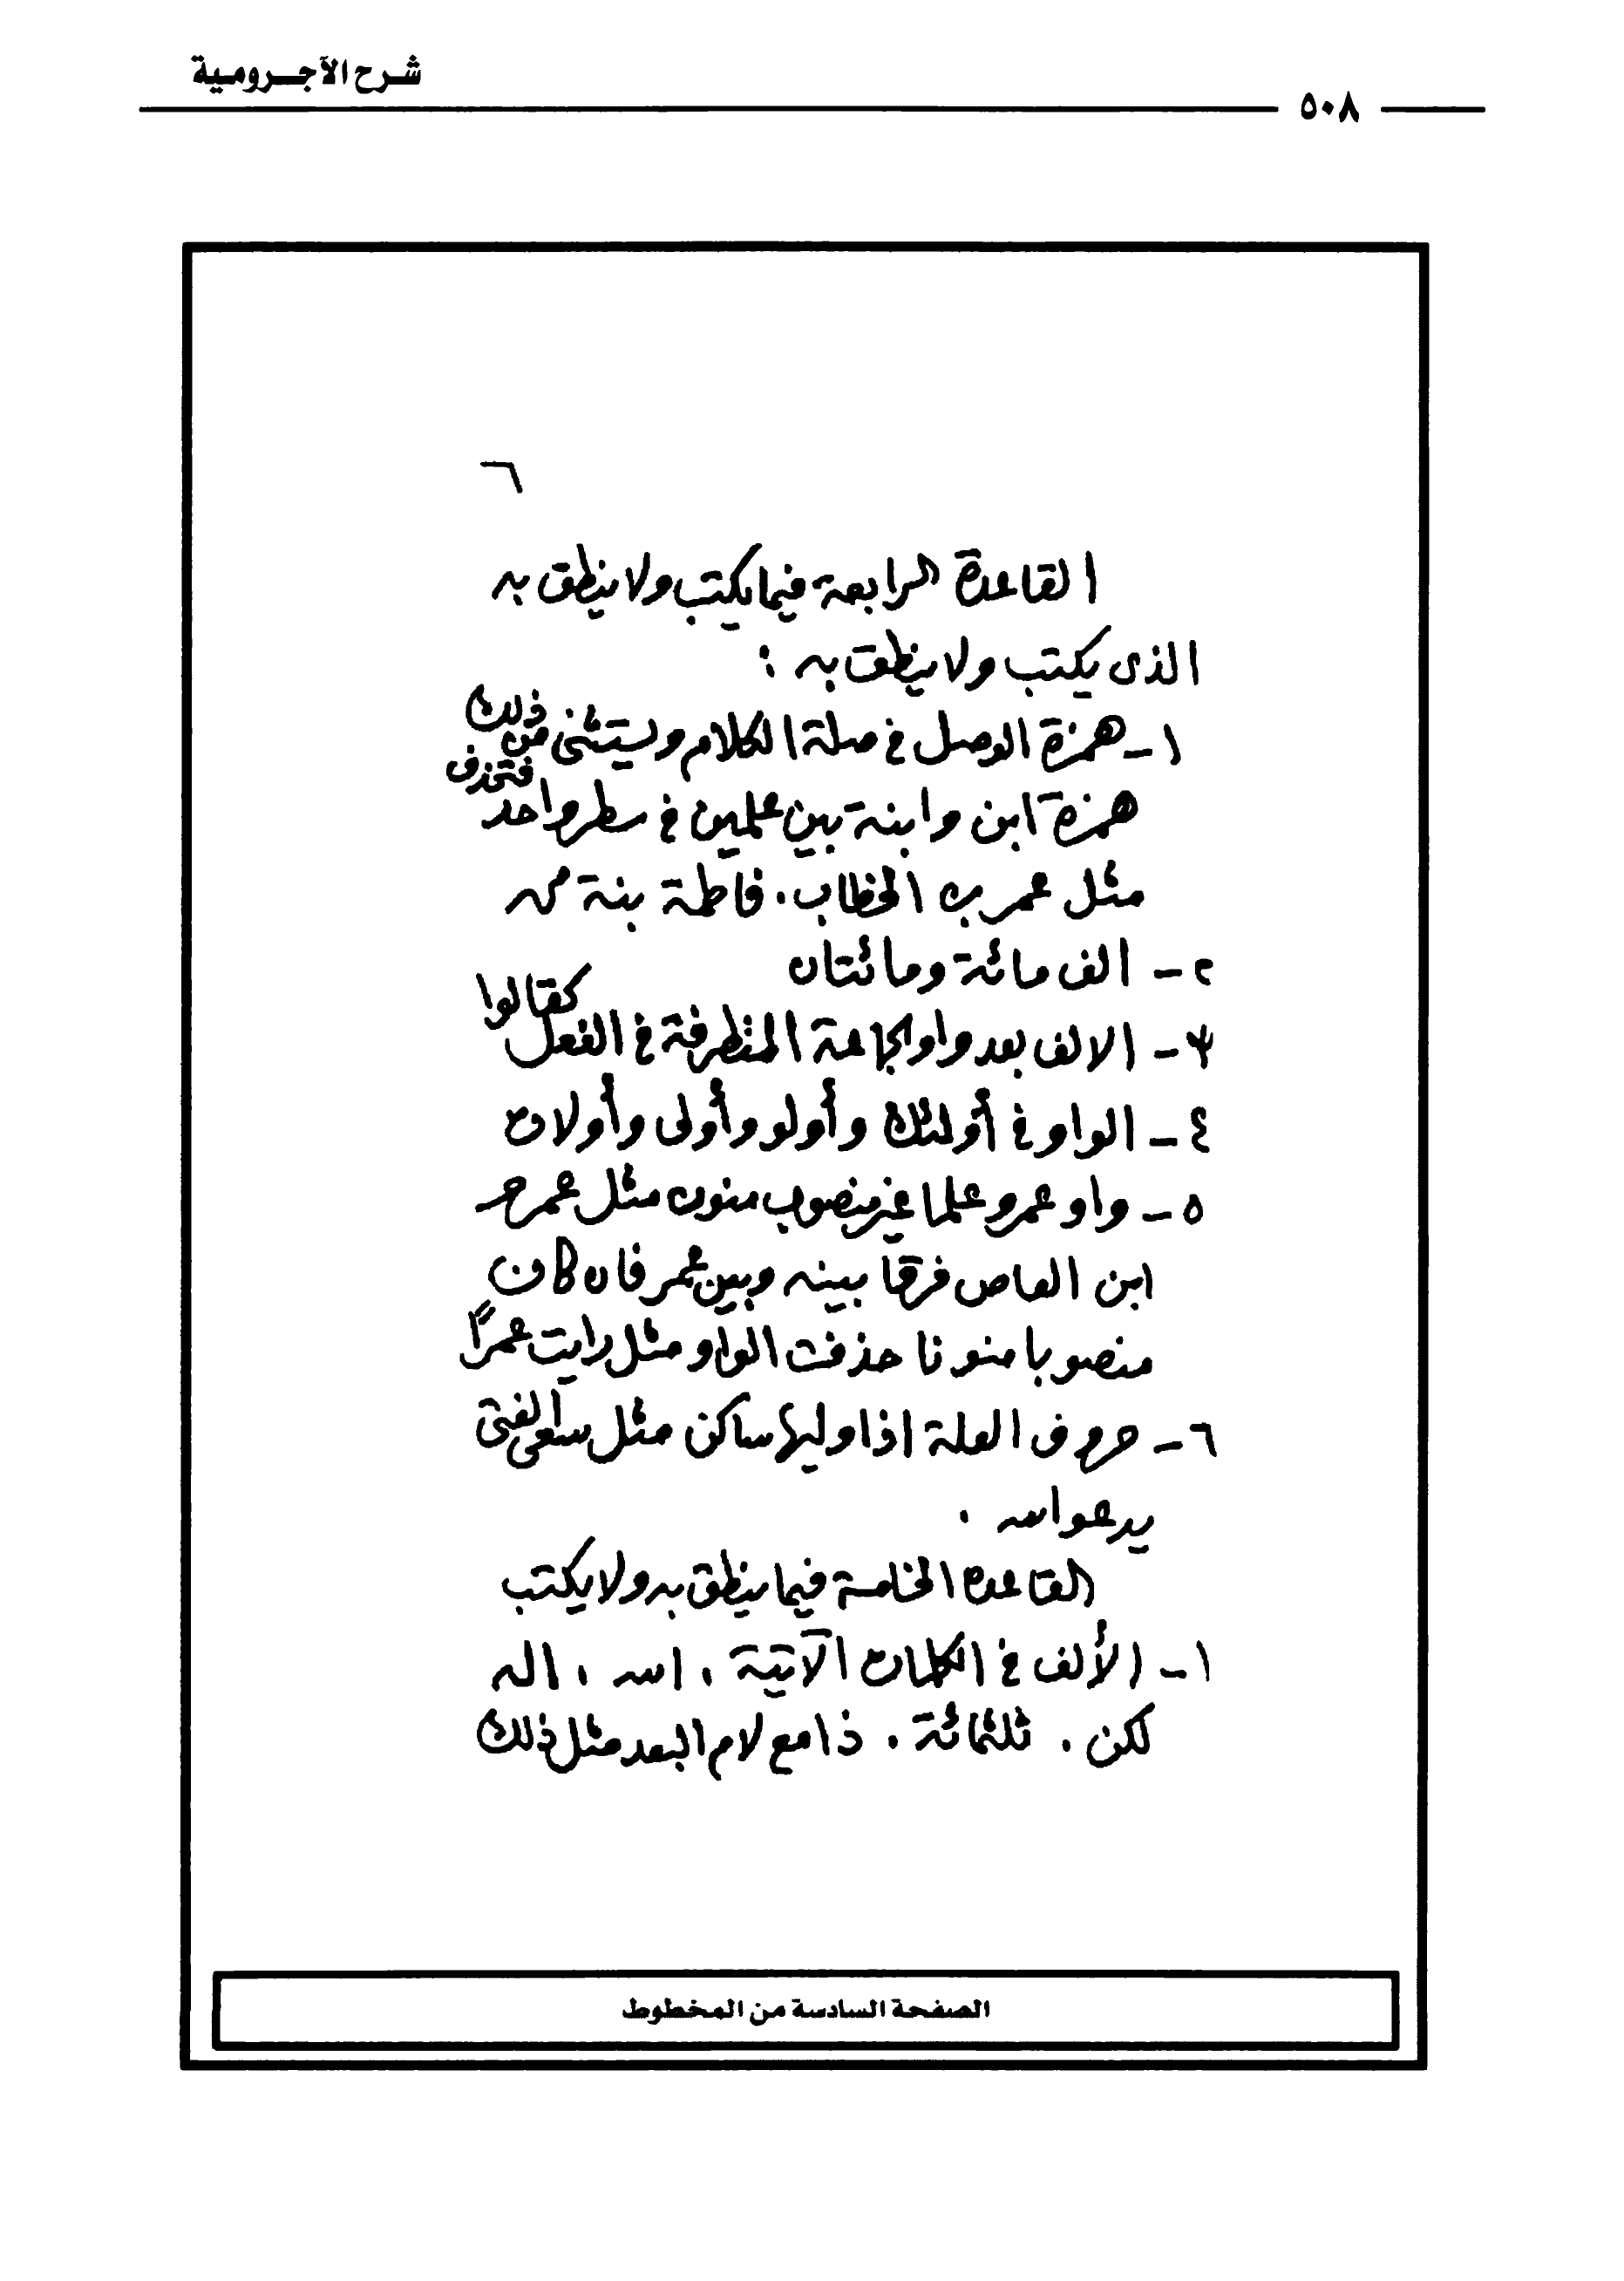 شرح الآجرومية
٥٠٨
٦
القاعدة الرابعة فيما يكتب ولا ينطق به
الذى يكتب ولا ينطق به :
١- همزة الوصل في صلة الكلام ويستثنى من ذلك
همزة ابن وابنة بين علمين في سطر واحد فتحذف
مثل عمر بن الخطاب . فاطمة بنة محمد
٢- الف مائة ومائتان
٣- الالف بعد واو الجماعة المتطرفة في الفعل كقالوا
٤- الواو في أولئك وأولو وأولى وأولات
٥- واو عمرو علما غير منصوب منون مثل عمرو
ابن العاص فرقا بينه وبين عمر فان كان
منصوبا منونا حذفت الواو مثل رايت عمرًا
٦- حروف العلة اذا وليها ساكن مثل سعى الفتى
يدعوا الله .
القاعدة الخامسة فيما ينطق به ولا يكتب
١- الألف في الكلمات الآتية ، الله ، اله
لكن . ثلثمائة . ذا مع لام البعد مثل ذلك
الصفحة السادسة من المخطوط